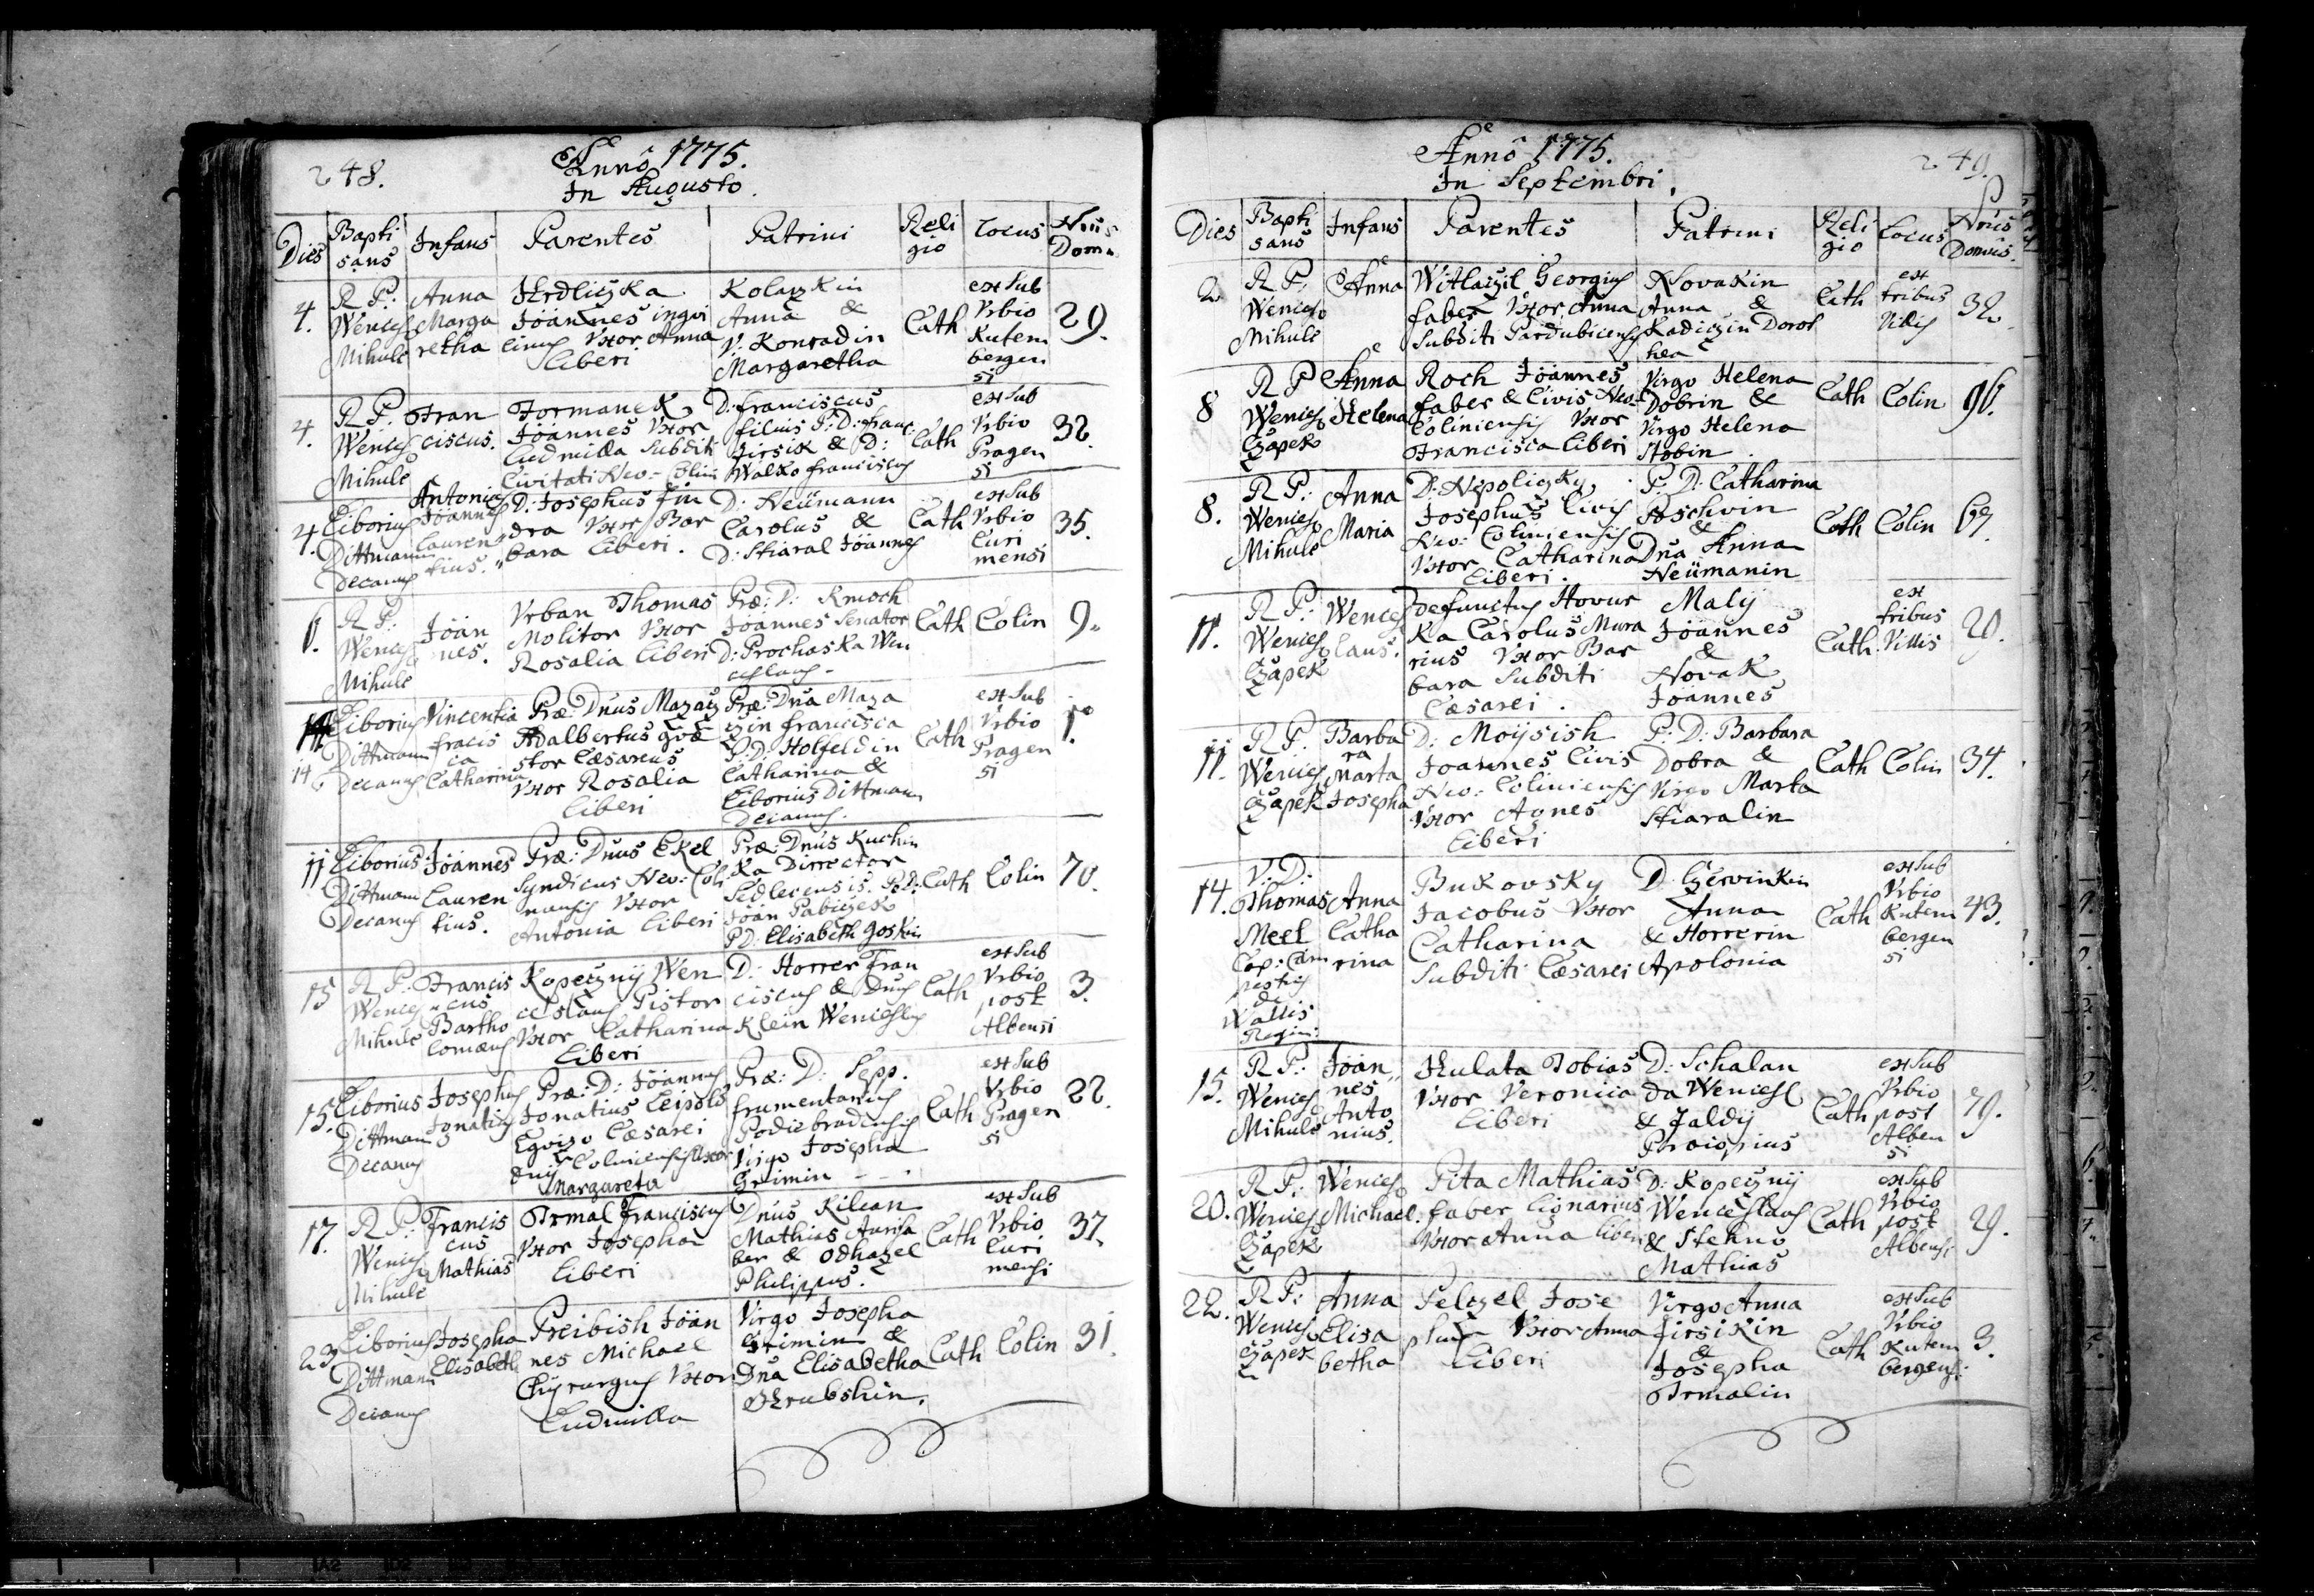 248.
Annô 1775.
In Augusto.
Dies
Bapti
sans
Infans
Parentes
Patrini
Reli
gio
Locus
Nrus
Dom.
4.
R P:
Wencesl
Mihule
Anna
Marga
retha
Hrdliczka
Jöannes inqui
linus Vxor Anna
Liberi
Anna &
V. Konradin
Margaretha
Cath
ex Sub
Vrbio
Kutem
bergen
si
29.
4.
R P.
Wencesl
Mihule
Fran
ciscus.
Formanek
Jöannes Vxor
Ludmilla Subditi
Civitati Neo-Colin
D: Franciscus
filius P: D: Franc:
Jirsik & D:
Walko Franciscus
Cath
ex Sub
Vrbio
Pragen
si
32.
4.
Liborius
Dittmann
Decanus
Antonius
Jöannes
Lauren
tius.
D. Josephus Jin
dra Vxor Bar
bara Liberi.
D: Neümann
Carolus &
D: Skaral Jöannes
Cath
ex Sub
Vrbio
Curi
mensi
35.
6.
R P:
Wencesl
Mihule
Jöan
nes.
Vrban Thomas
Molitor Vxor
Rosalia Liberi
Præ: D: Kmoch
Jöannes Senator
D: Prochaska Wen
ceslaus
Cath
Colin
9.
14.
Liborius
Dittmann
Decanus
Vincentia
Francis
ca
Catharina
Præ: Dnus Mazacz
Adalbertus quæ
stor Cæsareus
Vxor Rosalia
Liberi
Præ: Dna Maza
czin Francisca
P: D: Holfeldin
Catharina &
Liborius Dittmann
Decanus.
Cath
ex Sub
Vrbio
Pragen
si
1.
11
Liborius
Dittmann
Decanus
Jöannes
Lauren
tius.
Præ: Dnus Ekel
Syndicus Neo: Coli
nensis Vxor
Antonia Liberi
Præ: Dnus Kuchin
ka Dirrector
Sedlecensis. P: D:
Jöan Pabiczek
P D: Elisabeth Joskin
Cath
Colin
70.
15
R P:
Wencesl
Mihule
Francis
cus
Bartho
lomæus
Kopeczny Wen
ceslaus Pistor
Vxor Catharina
Liberi
D: Horrer Fran
ciscus & Dnus
Klein Wenceslaus
Cath
ex Sub
Vrbio
post
Albensi
3.
15.
Liborius
Dittman
Decanus
Josephus
Ignatius
Præ: D: Jöannes
Ignatius Leipold
Cæsarei
Coliniensis Vxor
Margareta
Præ: D: Sepp.
frumentarius
Podiebradensis
Virgo Josepha
Grimin
Cath
ex Sub
Vrbio
Pragen
si
22.
17.
R P:
Wencesl
Mihule
Francis
cus
Mathias
Trmal Franciscus
Vxor Josepha
Liberi
Dnus Kilean
Mathias Aurifa
ber & Odhazel
Philippus.
Cath
ex Sub
Vrbio
Curi
mensi
37.
23
Liborius
Dittmann
Decanus
Josepha
Elisabeth
Preibish Jöan
nes Michael
Chyrurgus Vxor
Ludmilla
Virgo Josepha
Grimin &
Dna Elisabetha
Hrubshin.
Cath
Colin
31.
Annô 1775.
In Septembri.
249.
Dies
Bapti
sans
Infans
Parentes
Patrini
Reli
gio
Locus
Nrus
Domûs.
2
R P.
Wencesl
Mihule
Anna
Witlaczil Georgius
faber Vxor Anna
Subditi Pardubicenses
Novakin
Anna &
Kadiczin Dorot
hea
Cath
ex
tribus
Villis
32
8
R P
Wencesl
Czapek
Anna
Helena
Roch Jöannes
faber & Civis Neo-
Coliniensis Vxor
Francisca Liberi
Virgo Helena
Dobrin &
Virgo Helena
Stobin.
Cath
Colin
96.
8.
R P:
Wencesl
Mihule
Anna
Maria
D: Nepoliczky
Josephus Civis
Neo: Coliniensis
Vxor Catharina
Liberi.
P: D: Catharina
Poschvin
&
Dna Anna
Neümanin
Cath
Colin
67.
11.
R P:
Wencesl
Czapek
Wences
laus.
Defunctus Hovur
ka Carolus Mura
rius Vxor Bar
bara Subditi
Cæsarei.
Maly
Jöannes
&
Novak
Jöannes
Cath.
ex
tribus
Villis
29.
11.
R P.
Wencesl
Czapek
Barba
ra
Marta
Josepha
D: Moysish
Joannes Civis
Neo: Coliniensis
Vxor Agnes
Liberi
P: D: Barbara
Dobra &
Virgo Marta
Skaralin
Cath
Colin
34.
14.
V. D:
Thomas
Meel
Cap: Cam
pestris
de
Wallis
Regim:
Anna
Catha
rina
Bukovsky
Jacobus Vxor
Catharina
Subditi Cæsarei
D. Czervinkin
Anna
& Horrerin
Apolonia
Cath
ex Sub
Vrbio
Kutem
bergen
si
43.
15.
R P:
Wencesl
Mihule
Jöan
nes
Anto
nius.
Hulata Tobias
Vxor Veronica
Liberi
D: Schalan
da Wencesl
& Jaldy
Procopius
Cath
ex Sub
Vrbio
post
Alben
si
79.
20.
R P:
Wencesl
Czapek
Wencesl
Michael.
Pita Mathias
faber lignarius
Vxor Anna Liberi
D: Kopeczny
Wenceslaus
& Stehno
Mathias
Cath
ex Sub
Vrbio
post
Albensi
29.
22.
R P:
Wencesl
Czapek
Anna
Elisa
betha
Pelczel Jose
phus Vxor Anna
Liberi
Virgo Anna
Jirsikin
&
Josepha
Trmalin
Cath
ex Sub
Vrbio
Kutem
bergensi
3.